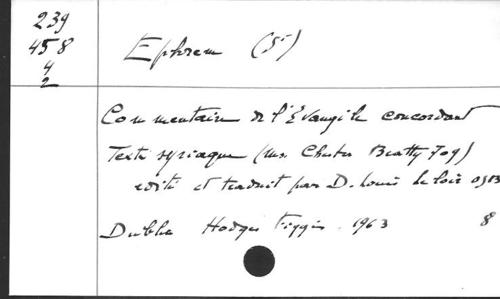 239
458
4
2
Ephrem (St)
Commentaire de l'Evangile concordant
Texte syriaque (Ms. Chester Beatty 709)
edité et traduit par D. Louis Leloir OSB
Dublin Hodges Figgis 1963 8